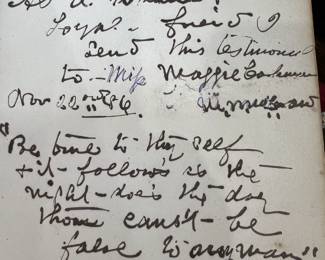 As a
Loyal - friend I
Send this testimonial
to - Miss Maggie
Nov 22nd 86.
"Be true to thy self
+ it - follows as the
night - does the day
thou can'st - be
false to any man"